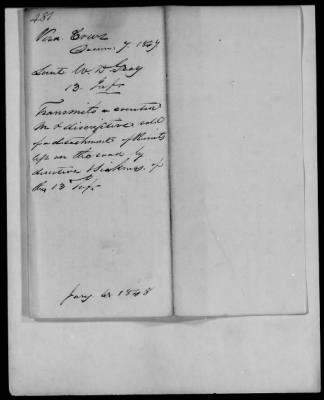 481
Vera Cruz
Decem. 7. 1847
Lieut W. D. Gray
13. Inf.
Transmits a corrected
M & discriptive roll
of a detachment of Recruits
left on the road by
desertion & sickness, of
the 13 Inf.
Jany 4 1848